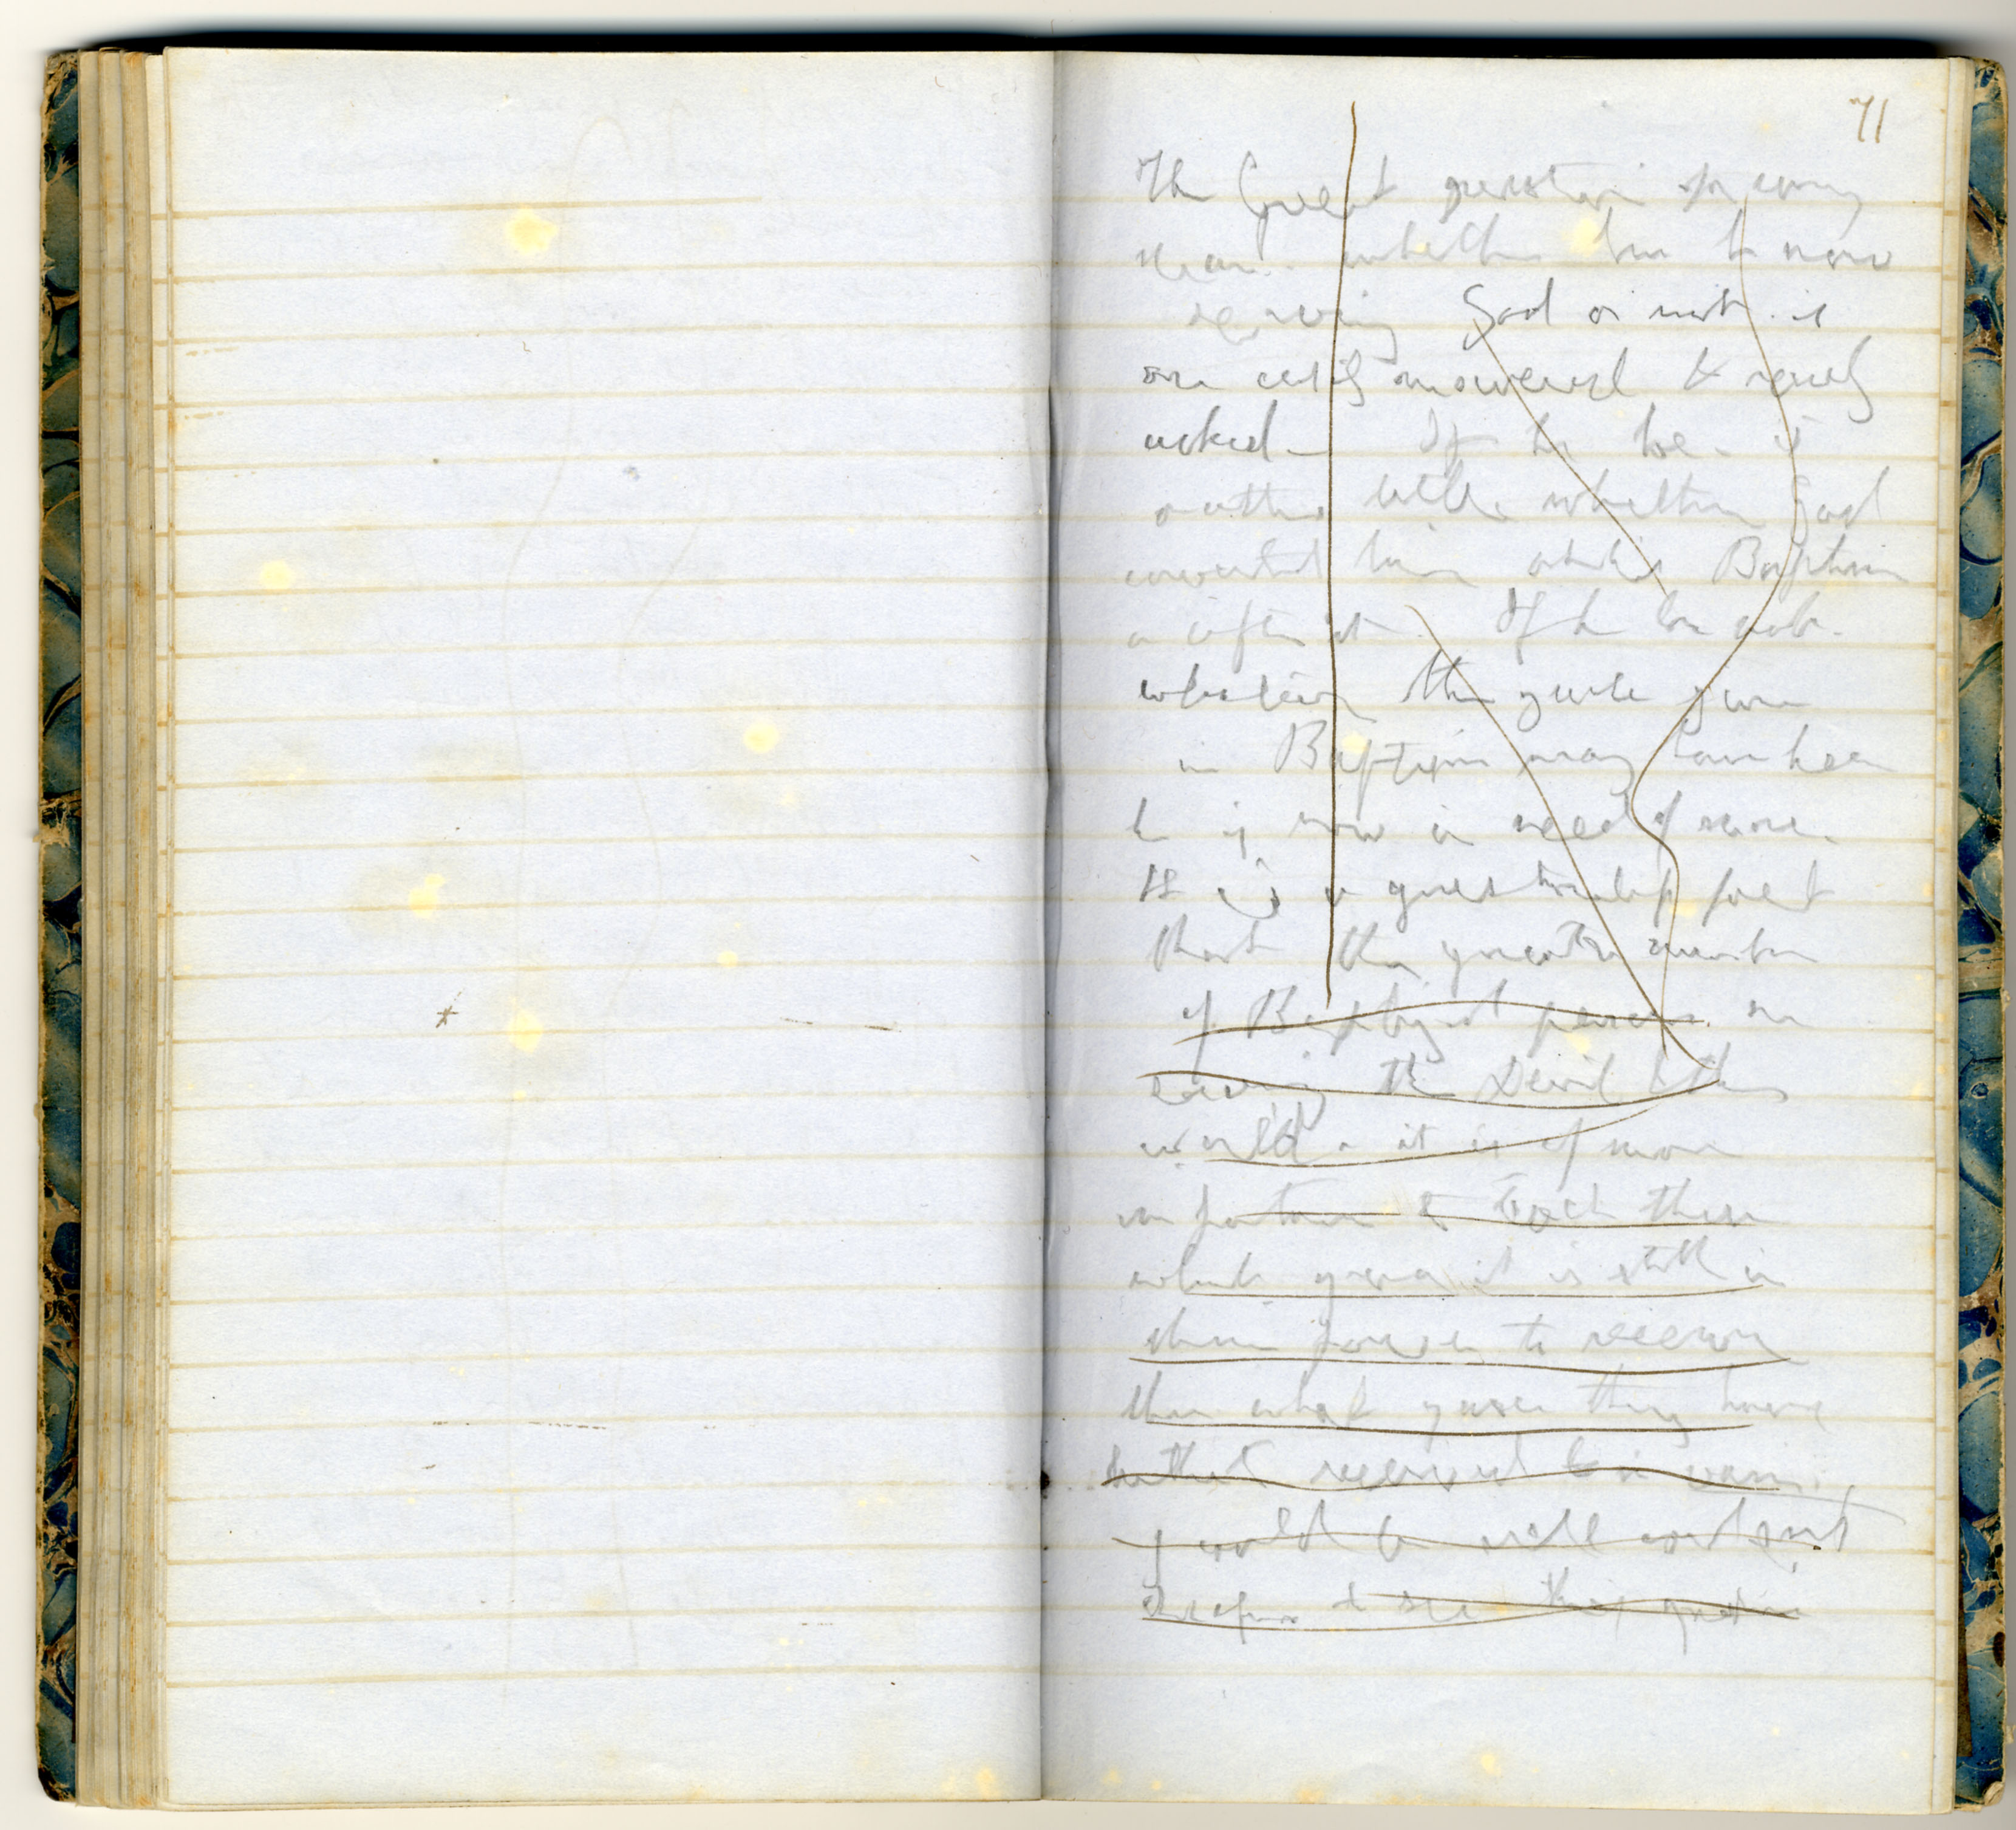 71
The Great question for every
man. whether he be now
serving God or not. is
one easily answered & rarely
asked - If he be - it
matters little whether God
converted him at his Baptism
or after it. If he be not.
whatever the grace given
in Baptism may have been
he is now in need of more.
It is a questionless fact
that the greater number
of Baptized persons are
serving the Devil & this
world. it is of more
importance to teach them
what grace it is still in
their power to receive
than what grace they have
hitherto received in vain.
I would be well content
therefore to see this question